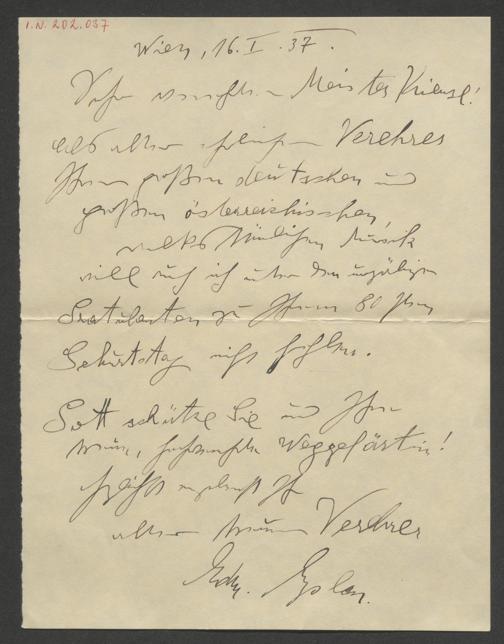 I.N. 202.037
Wien, 16. I. 37.
Sehr verehrter Meister Kienzl!
als alter Verehrer
Ihrer großen deutschen und
großen österreichischen,
volkstümlichen Musik
will auch ich unter den unzähligen
Gratulanten zu Ihrem 80 sten
Geburtstag nicht fehlen.
Gott schütze Sie und Ihre
treue, Weggefärtin!
Ihr
alter treuer Verehrer